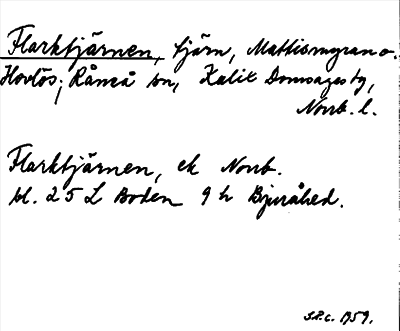 Flarktjärnen, tjärn, Mattismyran o.
Hovlös; Råneå sn, Kalix Domsagas tg,
Norrb. l.
Flarktjärnen, ek Norrb.
bl. 25 L Boden 9 h Bjuråhed.
S.P.c. 1959.